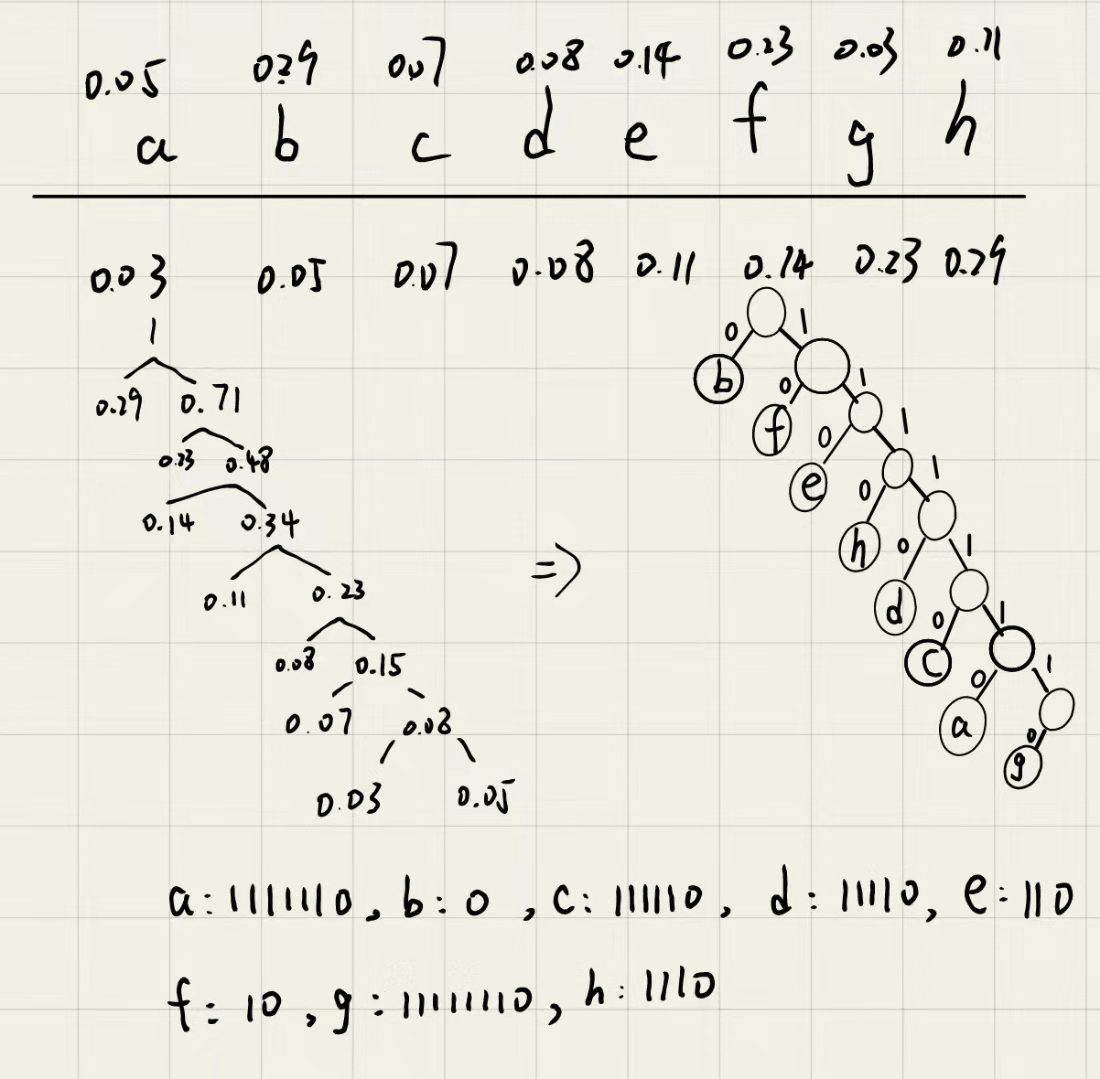 0.05 0.29 0.07 0.08 0.14 0.23 0.03 0.11
a b c d e f g h
0.03 0.05 0.07 0.08 0.11 0.14 0.23 0.29
1
0.29 0.71
0.23 0.48
0.14 0.34
0.11 0.23
0.08 0.15
0.07 0.08
0.03 0.05
⇒
0 1
b 0 1
f 0 1
e 0 1
h 0 1
d 0 1
c 0 1
a 0
g
a: 1111110, b: 0, c: 111110, d: 11110, e: 110
f: 10, g: 11111110, h: 1110